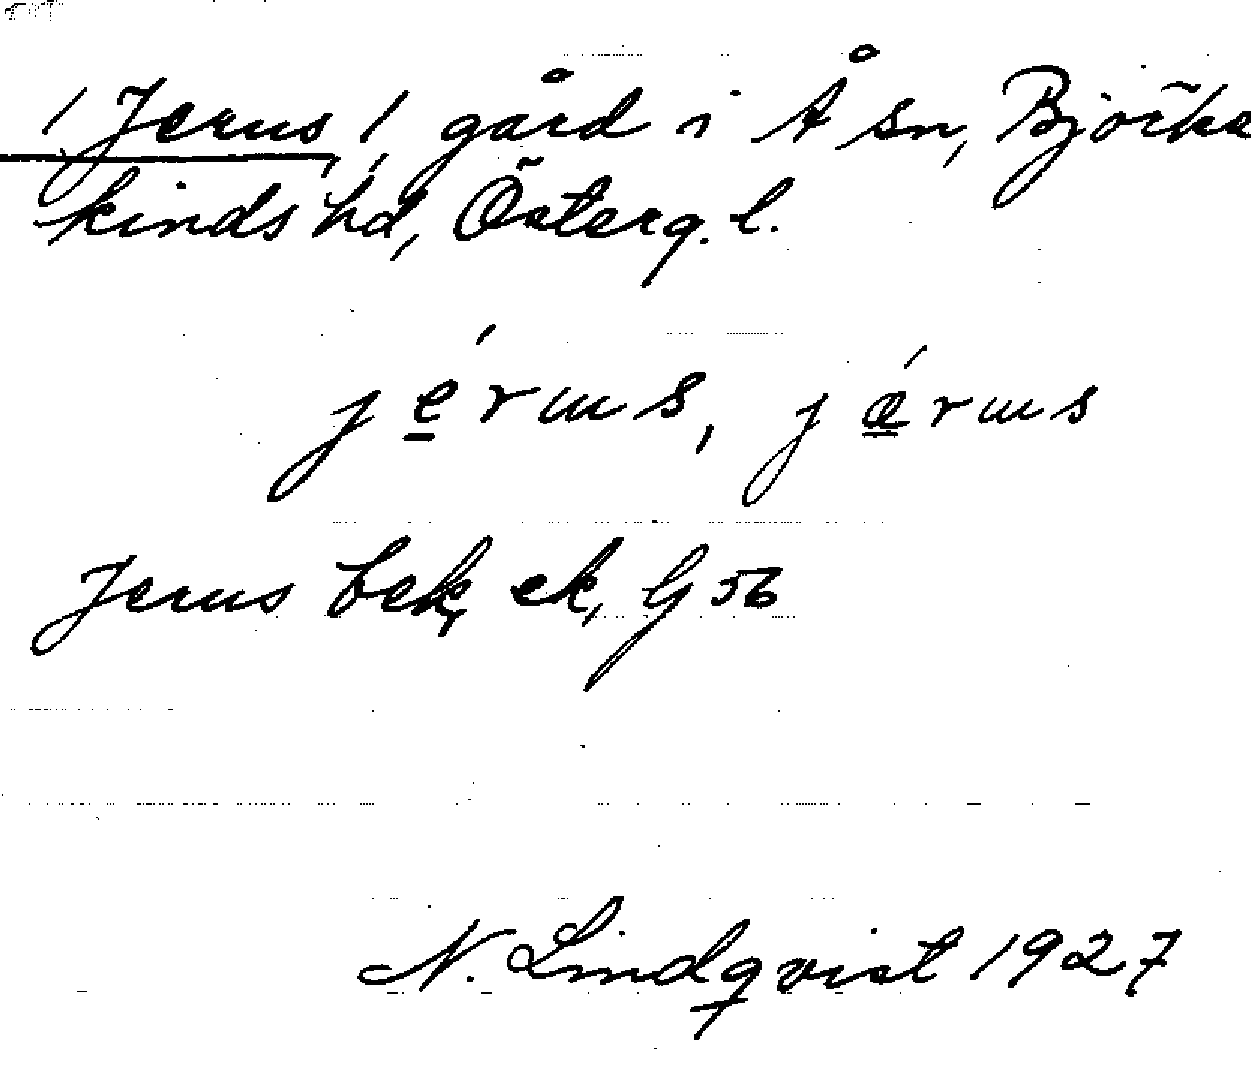 / Jerus /, gård i Å sn, Björke
kinds hd, Österg. l.
jérɯs, jǽrɯs
Jerus bek, ek, G 56
N. Lindqvist 1927